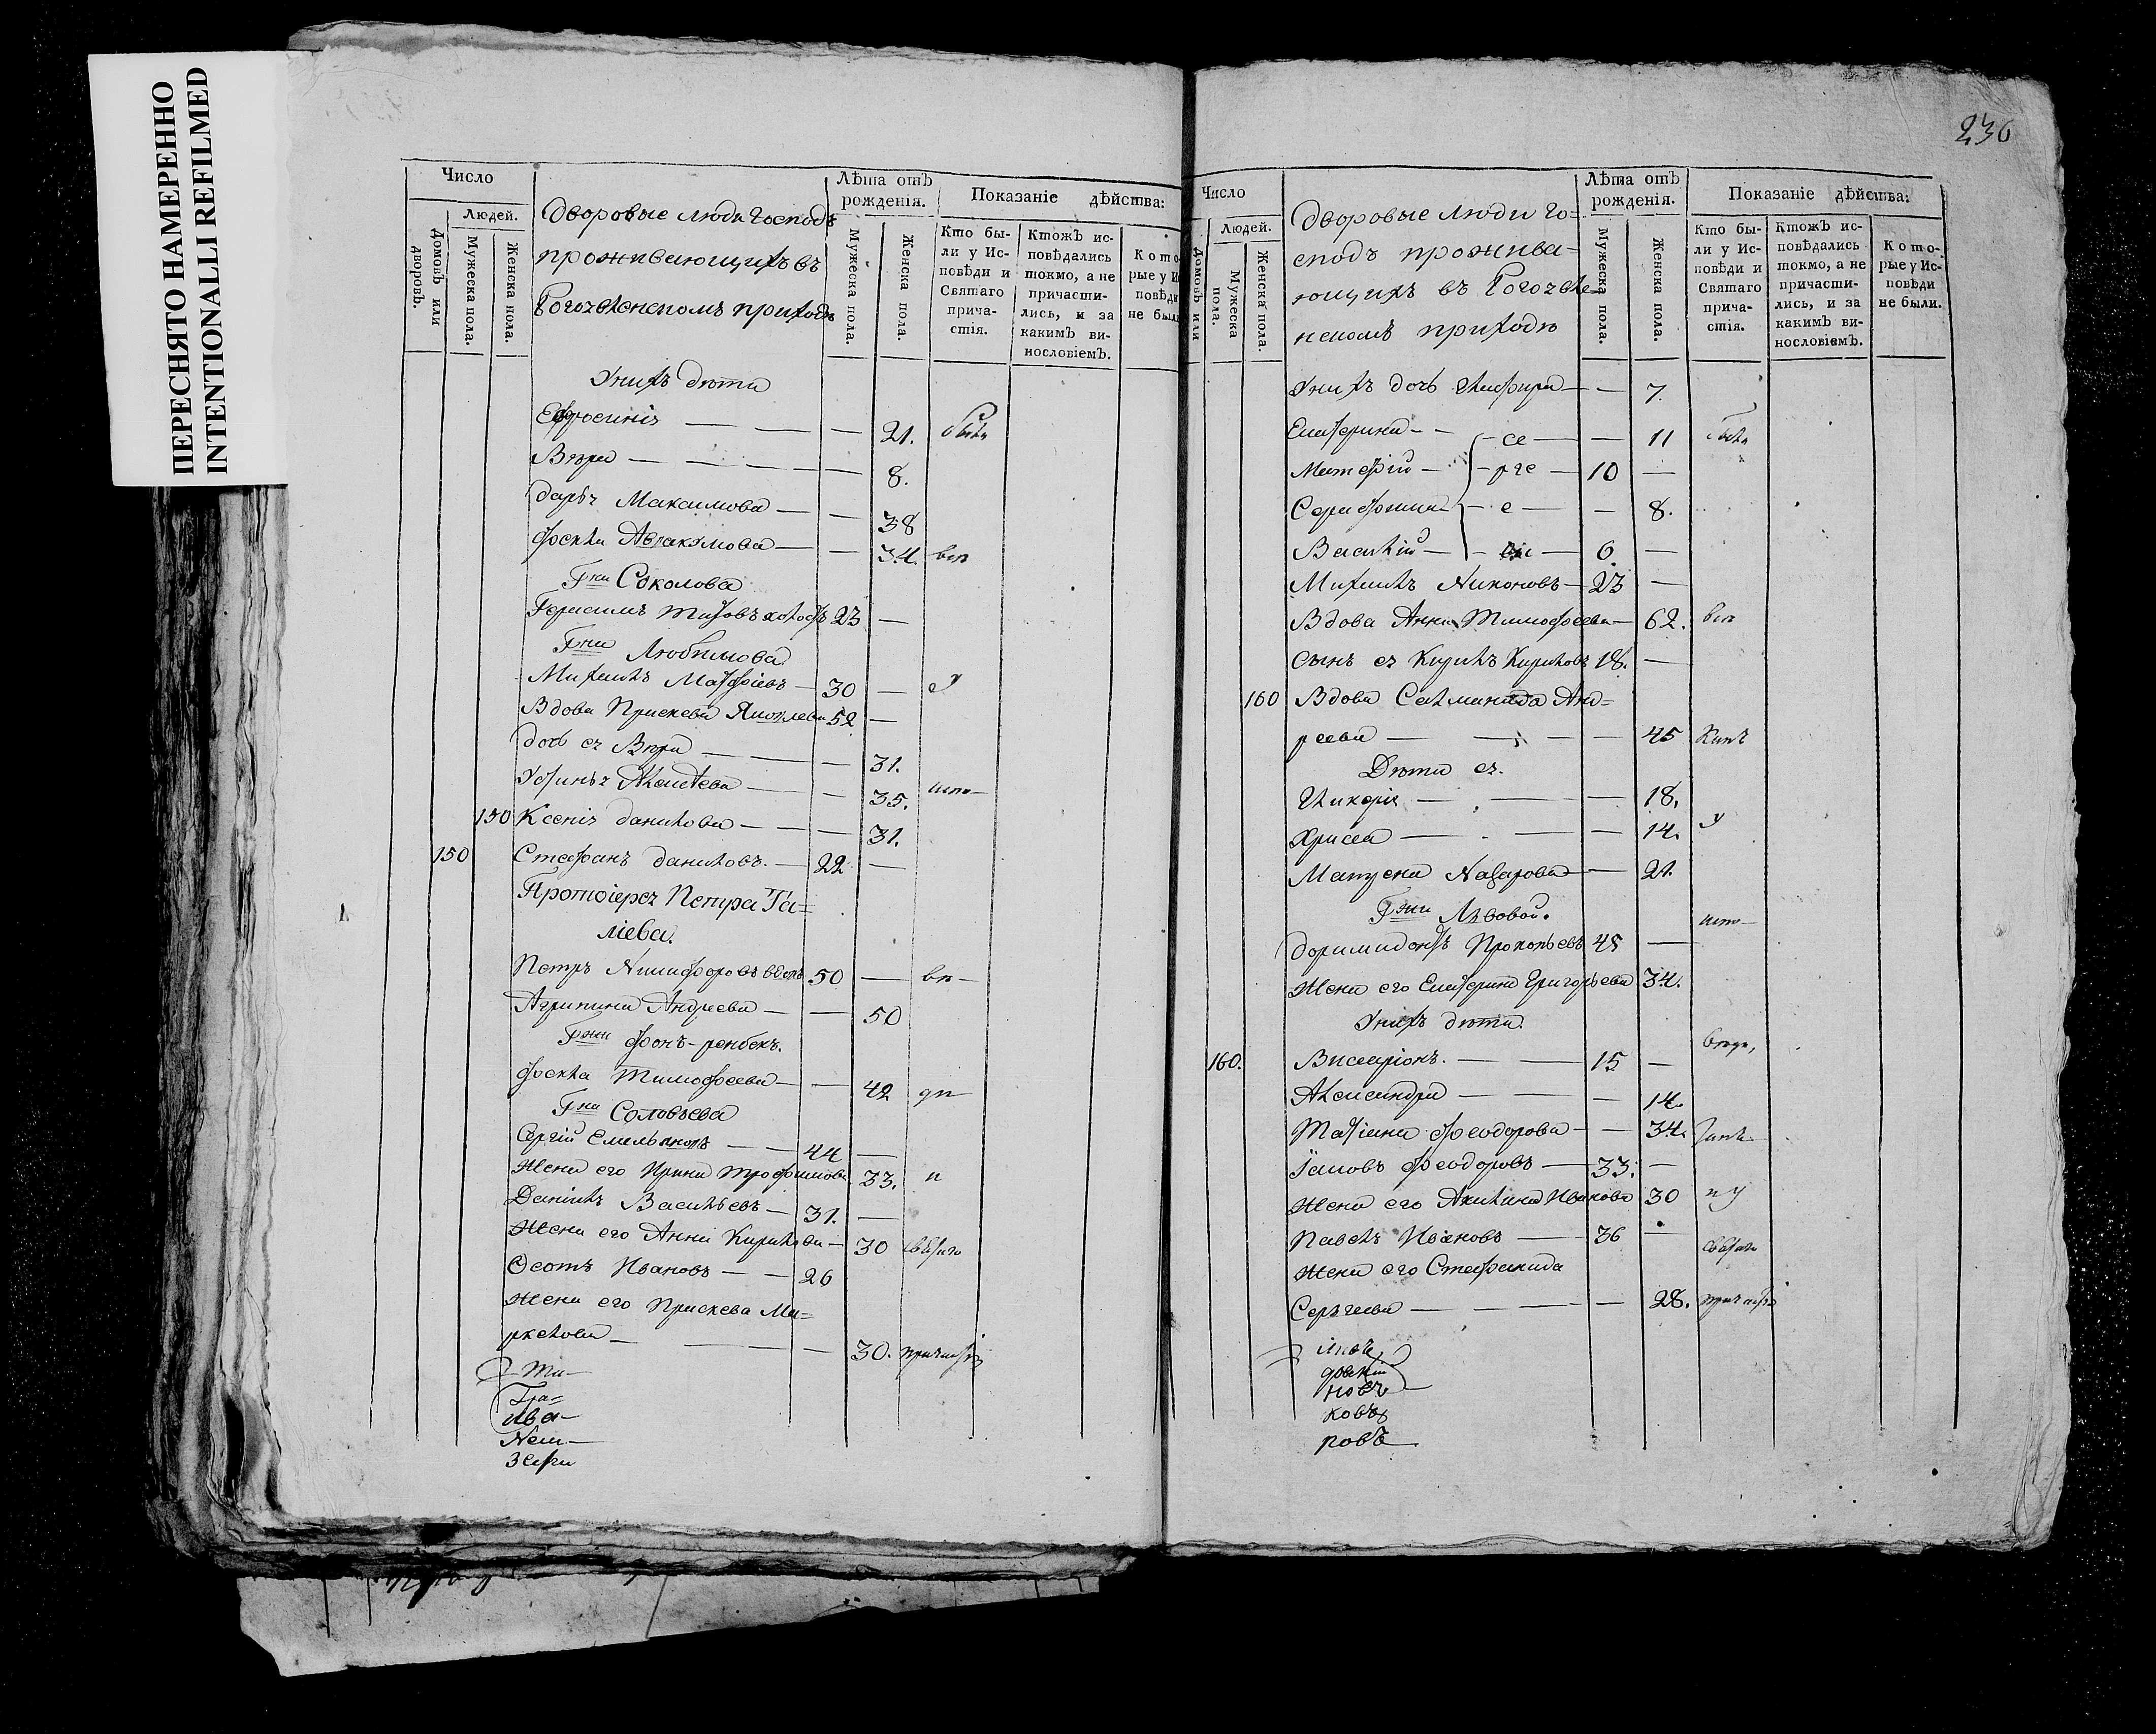 ПЕРЕСНЯТО НАМЕРЕННО
INTENTIONALLI REFILMED
236
Число
Людей.
Домовъ или дворовъ.
Мужеска пола.
Женска пола.
Дворовые люди господъ
проживающихъ въ
приходѣ
Лѣта отъ рожденія.
Мужеска пола.
Женска пола.
Показаніе дѣйства:
Кто были у Исповѣди и Святаго причастія.
Ктожъ исповѣдались токмо, а не причастились, и за какимъ винословіемъ.
У нихъ дѣти
Ефросинія — — — 21. были
Вѣра — — — 8.
Дарья Максимова — — 38
Фекла Авракумова — — 34. всѣ
Гна Соколова
Герасимъ Титовъ холостъ 23 —
Гна Любимова
Михаилъ — 30 — у
Вдова Прискева Яковлева 52 —
дочь ея Вѣра — — 31.
Устинья Алексѣева — — 35. испо—
150 Ксенія Данилова — — 31.
150 Стефанъ Даниловъ. — 22 —
Протоіерея Петра Га=
лiева.
Петръ Никифоровъ вдовъ 50 — вѣ—
Агрипина Андреева — — 50
Гжи фонъ-ренбекъ.
Фекла Тимофеева — — 42 ди
Гна Соловьева
Сергій Емельяновъ — — 44 —
Жена его Ирина Трофимова 33. и
Даніилъ Васильевъ — 31. —
Жена его Анна Кирилова — 30 святаго
Ѳеотъ Ивановъ — — 26
Жена его Прискева Ма=
ркелова — — — 30. причастія
Та—
Гра=
ива—
Нем—
Заха
Число
Людей.
Домовъ или
Мужеска пола.
Женска пола.
Дворовые люди го=
сподъ прожива=
ющихъ въ
нскомъ приходѣ
Лѣта отъ рожденія.
Мужеска пола.
Женска пола.
Показаніе дѣйства:
Кто были у Исповѣди и Святаго причастія.
Ктожъ исповѣдались токмо, а не причастились, и за какимъ винословіемъ.
Которые у Исповѣди не были.
У нихъ дочь Глафира — — 7.
Екатерина — — се — — 11 были
Матфій — — рге — 10 —
Серафима — е — — 8.
Василій — — — 6 —
Михаилъ Никоновъ — 23 —
Вдова Анна Тимофеева — 62. всѣ
сынъ ея Кирилъ Кириловъ 18. —
160 Вдова Саломанида Анд=
реева — — — — 45
Дѣти ея.
Гликерія — — — 18.
Хриса — — — 14. у
Мапуска Назарова — — 21.
Гжи Львовой.
испо—
Доримидонтъ Прокопьевъ 45 —
Жена его Екатерина Григорьева 34.
У нихъ дѣти.
160. Висаріонъ. — — 15 —
Александра — — — 14.
Татіана Феодорова — — 34.
Іаковъ Феодоровъ — 33. —
Жена его Акилина Иванова 30 и у
Павелъ Ивановъ — 36 — святаго
Жена его Стефанида
Сергѣева — — — — 28. причастія
новъ
ковъ
ровъ